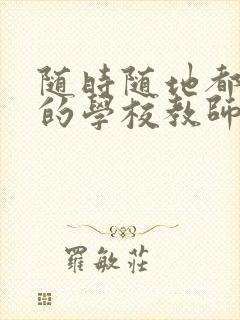 随時随地都
的學校教師
羅敏莊